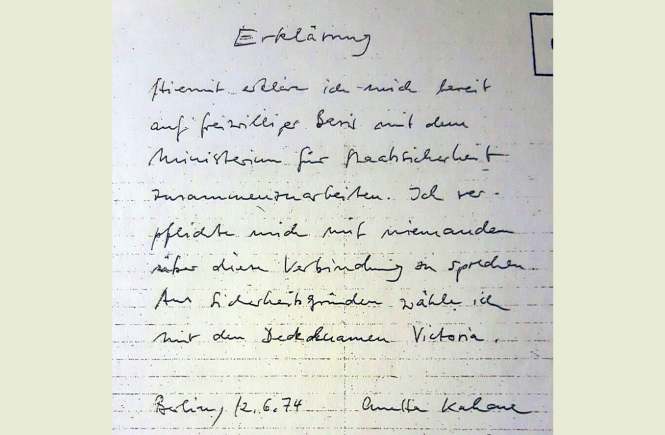 Erklärung
Hiermit erkläre ich mich bereit
auf freiwilliger Basis mit dem
Ministerium für Staatsicherheit
zusammenzuarbeiten. Ich ver-
pflichte mich mit niemanden
über diese Verbindung zu sprechen
Aus Sicherheitsgründen wähle ich
mit den Decknamen Victoria.
Berlin, 12.6.74 Annetta Kahane